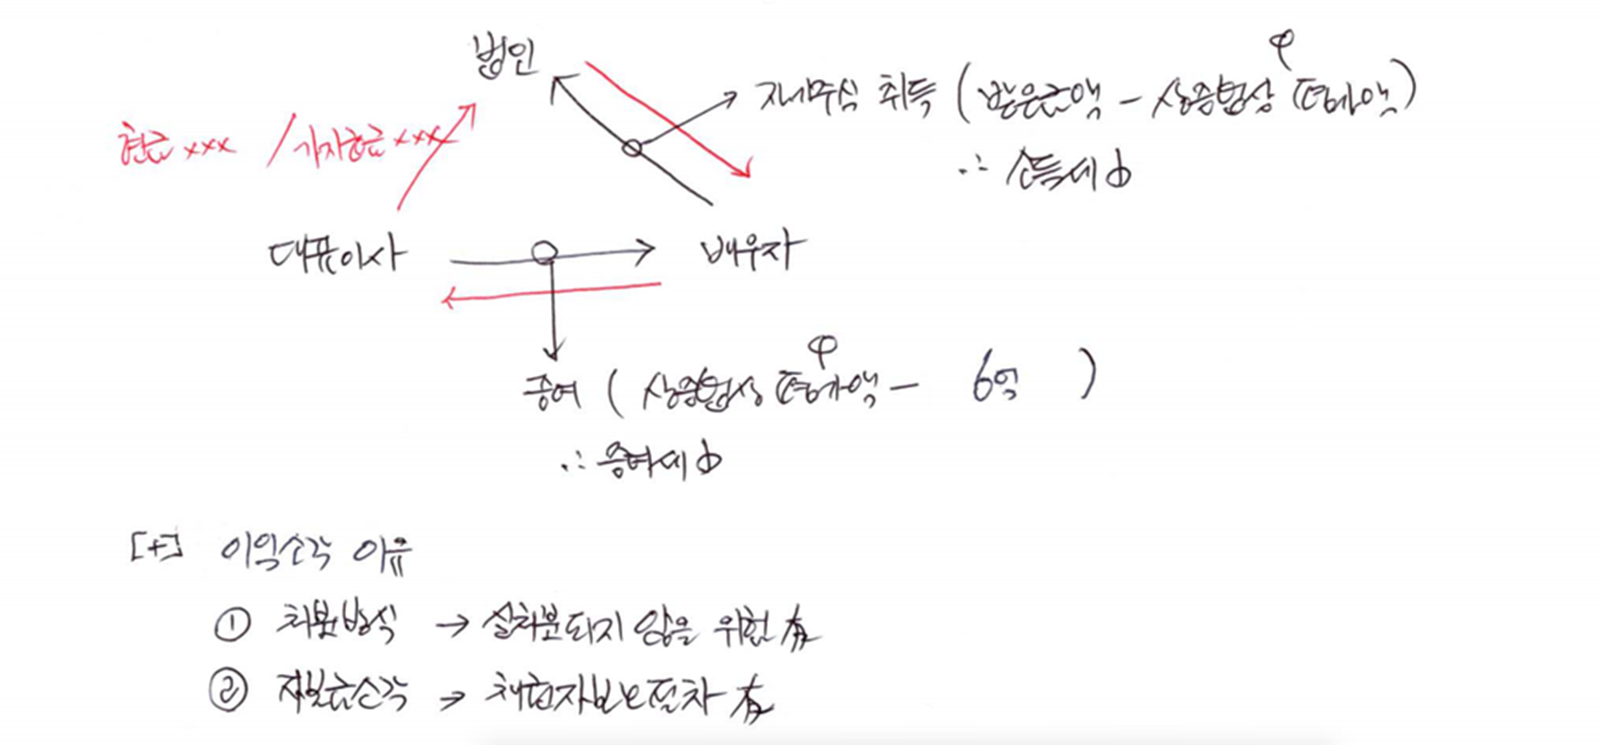 법인
φ
자기주식 취득 (받은금액 - 상증법상 평가액)
∴ 소득세 φ
현금 xxx / 가지급금 xxx
대표이사
배우자
φ
증여 ( 상증법상 평가액 - 6억 )
∴ 증여세 φ
[+] 이익소각 이유
① 처분방식 → 실처분되지 않을 위험 有
② 자본금소각 → 채권자보호절차 有